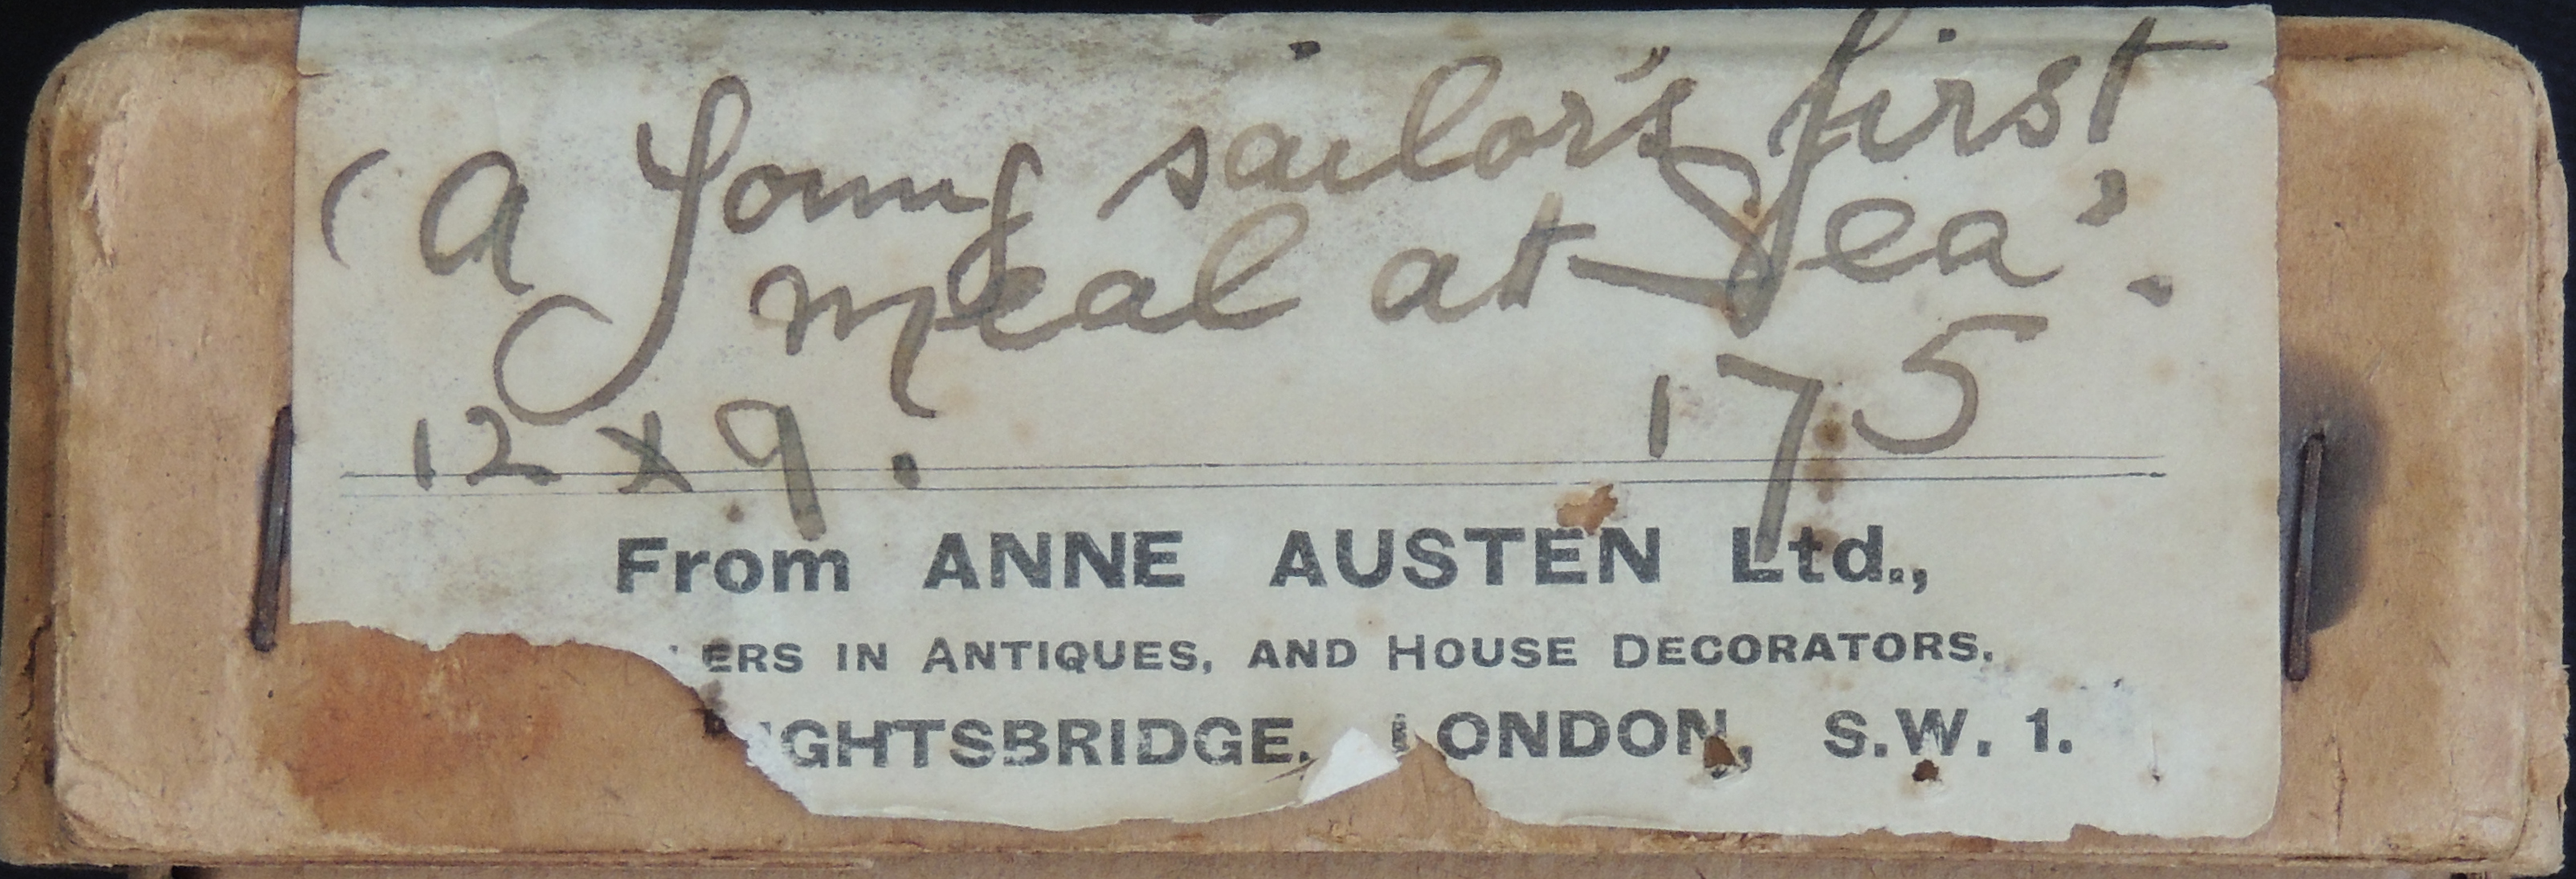 ‘a Young sailor's first
meal at Sea’.
12 x 9.
175
From ANNE AUSTEN Ltd.,
ERS IN ANTIQUES, AND HOUSE DECORATORS.
IGHTSBRIDGE. LONDON, S.W. 1.